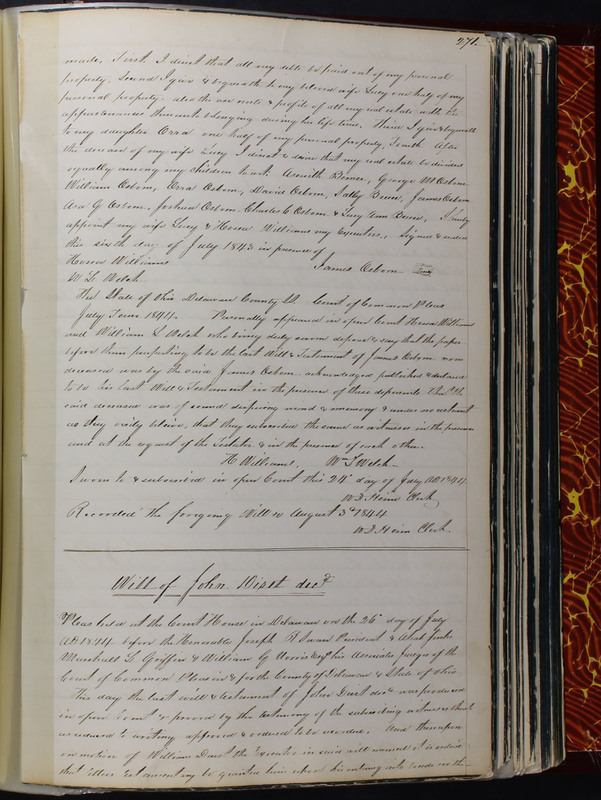 271.
made. First I direct that all my debts be paid out of my personal
property. Second I give & bequeath to my beloved wife Lucy one half of my
personal property. also the use rents & profits of all my real estate with the
appurtenances thereunto belonging during her life time. Third I give & bequeath
to my daughter Orra one half of my personal property, Fourth After
the decease of my wife Lucy I direct & desire that my real estate be divided
equally among my children to wit. Asenith George M Osborn
William Osborn, Orra Osborn, David Osborn, Sally James Osborn
Asa G Osborn, Joshua Osborn Charles C Osborn & Lucy Ann I hereby
appoint my wife Lucy & Hosea Williams my Executors. Signed & sealed
this sixth day of July 1843 in presence of
Hosea Williams James Osborn Seal
W L Welch
The State of Ohio Delaware County SS. Court of Common Pleas
July Term 1844. Personally appeared in open Court Hosea Williams
and William L Welch who being duly sworn depose & say that the paper
before them purporting to be the last Will & Testament of James Osborn now
deceased was by the said James Osborn acknowledged published & declared
to be his last Will & Testament in the presence of these deponents That the
said deceased was of sound disposing mind & memory & under no restraint
as they verily believe, that they subscribed the same as witnesses in the presence
and at the request of the Testator & in the presence of each other.
H Williams, Wm L Welch
Sworn to & subscribed in open Court this 24th day of July AD 1844.
W D Heim Clerk
Recorded the foregoing Will &c August 3d 1844
W D Heim Clerk.
Will of John decd
Pleas held at the Court House in Delaware on the 26th day of July
AD 1844 before the Honorable Joseph R Swan President & Ahab Jinks
L Griffin & William G Norris Esqrs his Associate Judges of the
Court of Common Pleas in & for the County of Delaware & State of Ohio
This day the last will & testament of John decd was produced
in open Court & proved by the testimony of the subscribing witnesses that
is reduced to writing approved & ordered to be recorded. And thereupon
on motion of William the Executor in said will named it is ordered
that letters testamentary be granted him upon his entering into bonds in the